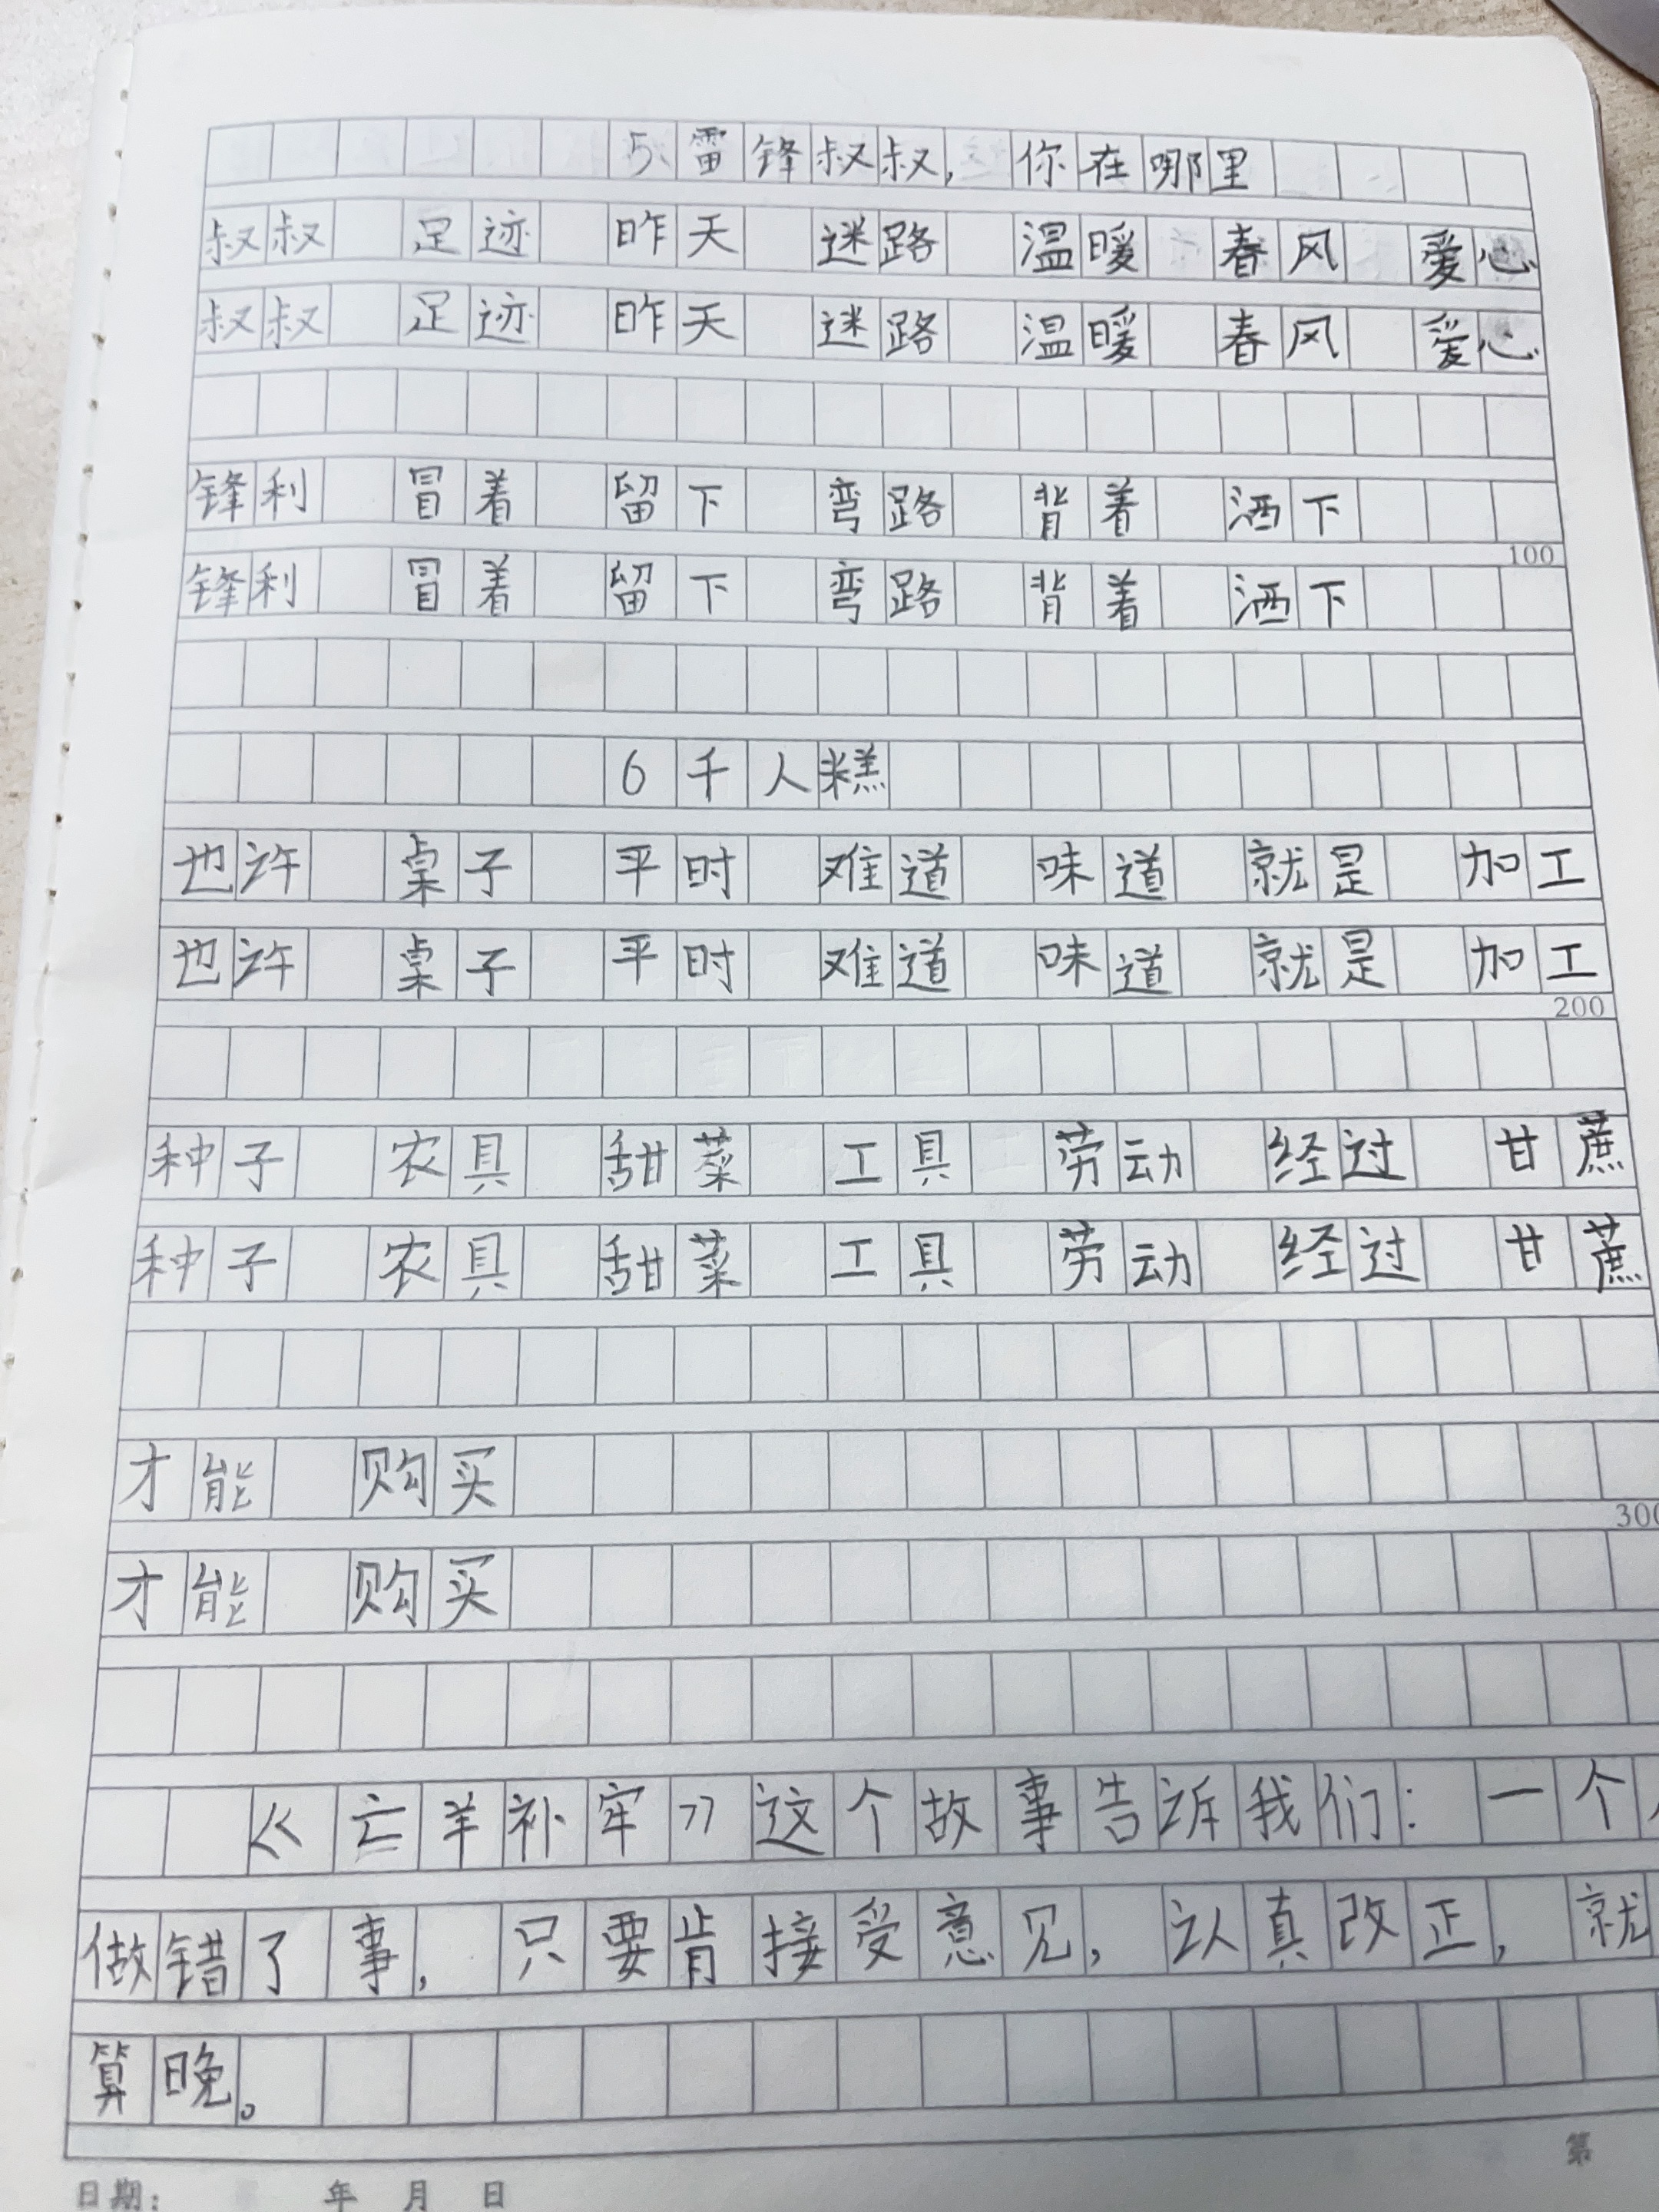 5、雷锋叔叔，你在哪里
叔叔 足迹 昨天 迷路 温暖 春风 爱心
叔叔 足迹 昨天 迷路 温暖 春风 爱心
锋利 冒着 留下 弯路 背着 洒下
100
锋利 冒着 留下 弯路 背着 洒下
6 千人糕
也许 桌子 平时 难道 味道 就是 加工
也许 桌子 平时 难道 味道 就是 加工
200
种子 农具 甜菜 工具 劳动 经过 甘蔗
种子 农具 甜菜 工具 劳动 经过 甘蔗
才能 购买
300
才能 购买
《亡羊补牢》这个故事告诉我们：一个
做错了事，只要肯接受意见，认真改正，就
算晚。
第
日期： 年 月 日